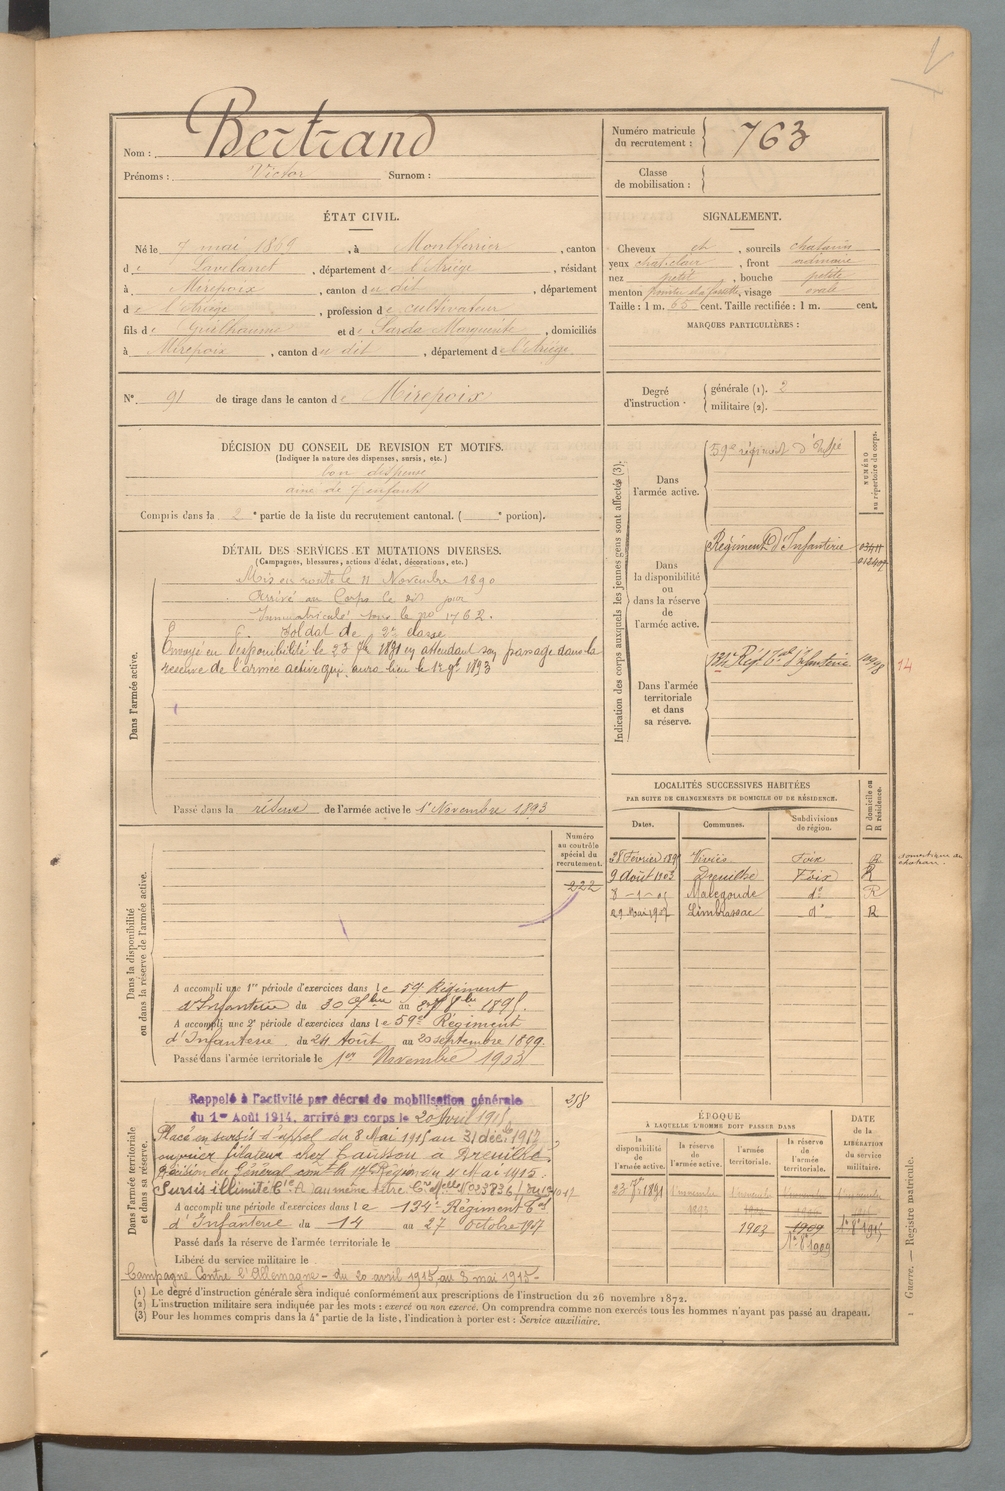 Nom : Bertrand
Prénoms : Victor Surnom :
Numéro matricule du recrutement : 763
Classe de mobilisation :
ÉTAT CIVIL.
Né le 7 mai 1869, à Montferrier, canton
de Lavelanet, département de l'Ariège, résidant
à Mirepoix, canton du dit, département
de l'Ariège, profession de cultivateur
fils de Guilhaume et de Sarda Marguerite, domiciliés
à Mirepoix, canton du dit, département de l'Ariège.
SIGNALEMENT.
Cheveux ch, sourcils chatains
yeux chat. clair, front ordinaire
nez petit, bouche petite
menton pointu à fossette, visage ovale
Taille : 1 m. 65 cent. Taille rectifiée : 1 m. cent.
MARQUES PARTICULIÈRES :
N° 91 de tirage dans le canton de Mirepoix
Degré d'instruction . générale (1). 2
militaire (2).
DÉCISION DU CONSEIL DE REVISION ET MOTIFS.
(Indiquer la nature des dispenses, sursis, etc.)
bon dispensé
ainé de 7 enfants
Compris dans la 2e partie de la liste du recrutement cantonal. ( e portion).
DÉTAIL DES SERVICES ET MUTATIONS DIVERSES.
(Campagnes, blessures, actions d'éclat, décorations, etc.)
Dans l'armée active.
Mis en route le 11 Novembre 1890
Arrivé au Corps le dit jour
Immatriculé sous le no 1762.
Soldat de 2e classe
Envoyé en disponibilité le 23 7bre 1891 en attendant son passage dans la
réserve de l'armée active qui aura lieu le 1er 9bre 1893
Passé dans la réserve de l'armée active le 1er Novembre 1893
Indication des corps auxquels les jeunes gens sont affectés (3).
NUMÉRO au répertoire du corps.
Dans l'armée active.
59e régiment d'Infie
Dans la disponibilité ou dans la réserve de l'armée active.
Régiment d'Infanterie
Dans l'armée territoriale et dans sa réserve.
134e Régt Tal d'Infanterie
14
LOCALITÉS SUCCESSIVES HABITÉES
PAR SUITE DE CHANGEMENTS DE DOMICILE OU DE RÉSIDENCE.
Dates. Communes. Subdivisions de région. D domicile ou R résidence.
Viviès Foix R
9 Août 1903 Dreuilhe Foix R
Malegoude do R
29 Mai 1907 Limbrassac do R
Dans la disponibilité ou dans la réserve de l'armée active.
Numéro au contrôle spécial du recrutement.
222
A accompli une 1re période d'exercices dans le 59 Régiment
d'Infanterie du 30 7bre au 8bre 1895.
A accompli une 2e période d'exercices dans le 59e Régiment
d'Infanterie. du 24 Août au 20 septembre 1899.
Passé dans l'armée territoriale le 1er Novembre 1903
Dans l'armée territoriale et dans sa réserve.
Rappelé à l'activité par décret de mobilisation générale
du 1er Août 1914, arrivé au corps le 20 Avril 1915
Placé en sursis d'appel du 8 Mai 1915 au 31 décbre 1917
ouvrier filateur chez Caussou à Dreuilhe.
Décision du Général comt la 17e Région du 4 Mai 1915.
Sursis illimité
218
A accompli une période d'exercices dans le 134e Régiment Tal
d'Infanterie du 14 au 27 octobre 1907
Passé dans la réserve de l'armée territoriale le
Libéré du service militaire le
Campagne Contre l'Allemagne - du 20 avril 1915 au 8 mai 1915 -
ÉPOQUE
À LAQUELLE L'HOMME DOIT PASSER DANS
la disponibilité de l'armée active. la réserve de l'armée active. l'armée territoriale. la réserve de l'armée territoriale.
DATE de la LIBÉRATION du service militaire.
23 7bre 1891 1 novembre 1893 1 novembre
1903 1909
(1) Le degré d'instruction générale sera indiqué conformément aux prescriptions de l'instruction du 26 novembre 1872.
(2) L'instruction militaire sera indiquée par les mots : exercé ou non exercé. On comprendra comme non exercés tous les hommes n'ayant pas passé au drapeau.
(3) Pour les hommes compris dans la 4e partie de la liste, l'indication à porter est : Service auxiliaire.
1 Guerre. — Registre matricule.